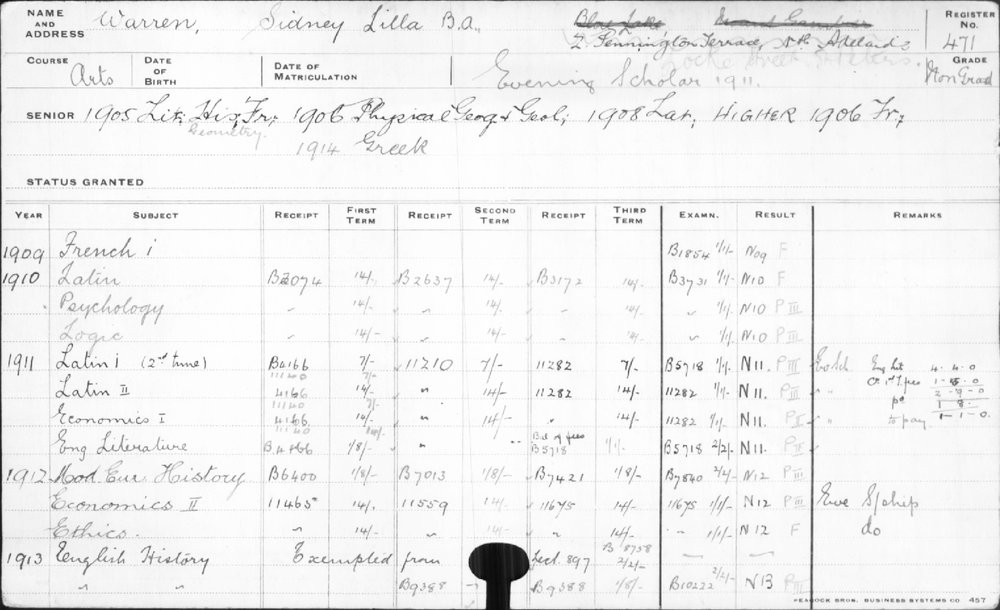 NAME AND ADDRESS Warren, Sidney Lilla B.A., Blue Lake Mount Gambier REGISTER No. 471
2. Pennington Terrace, Nth Adelaide
COURSE Arts DATE OF BIRTH DATE OF MATRICULATION Evening Scholar 1911. GRADE Non Grad
SENIOR 1905 Lit; His; Fr; 1906 Physical Geog & Geol; 1908 Lat; HIGHER 1906 Fr;
Geometry. 1914 Greek
STATUS GRANTED
YEAR SUBJECT RECEIPT FIRST TERM RECEIPT SECOND TERM RECEIPT THIRD TERM EXAMN. RESULT REMARKS
1909 French i B1854 1/1/- N09 F
1910 Latin B2074 14/- B2637 14/- B3172 14/- B3731 1/1/- N10 F
Psychology " 14/- " 14/- " 14/- " 1/1/- N10 P III
Logic " 14/- " 14/- " 14/- " 1/1/- N10 P III
1911 Latin i (2nd time) B4166 7/- 11210 7/- 11282 7/- B5718 1/1/- N11. P III Eng Lit 4.4.0
11140 7/-
Latin II 4166 14/- " 11282 14/- 11282 1/1/- N11. P III " 2-9-0
11140 7/-
Economics I 4166 14/- " 14/- " 14/- 11282 1/1/- N11. P II " to pay. 1-1-0
11140 14/-
Eng Literature 1/8/- " " Bal of fees B5718 1/1/- B5718 2/2/- N11. P II
1912 Mod. Eur. History B6400 1/8/- B7013 1/8/- B7421 1/8/- B7840 2/2/- N12 P III
Economics II 11465 14/- 11559 14/- 11675 14/- 11675 1/1/- N12 P III Eve S/ship
Ethics. " 14/- 14/- 14/- " 1/1/- N12 F do
1913 English History Exempted from Lect. 897 B 8758 2/2/-
" " B9388 B9388 1/8/- B10222 2/2/- N13 P III
PEACOCK BROS. BUSINESS SYSTEMS CO 457